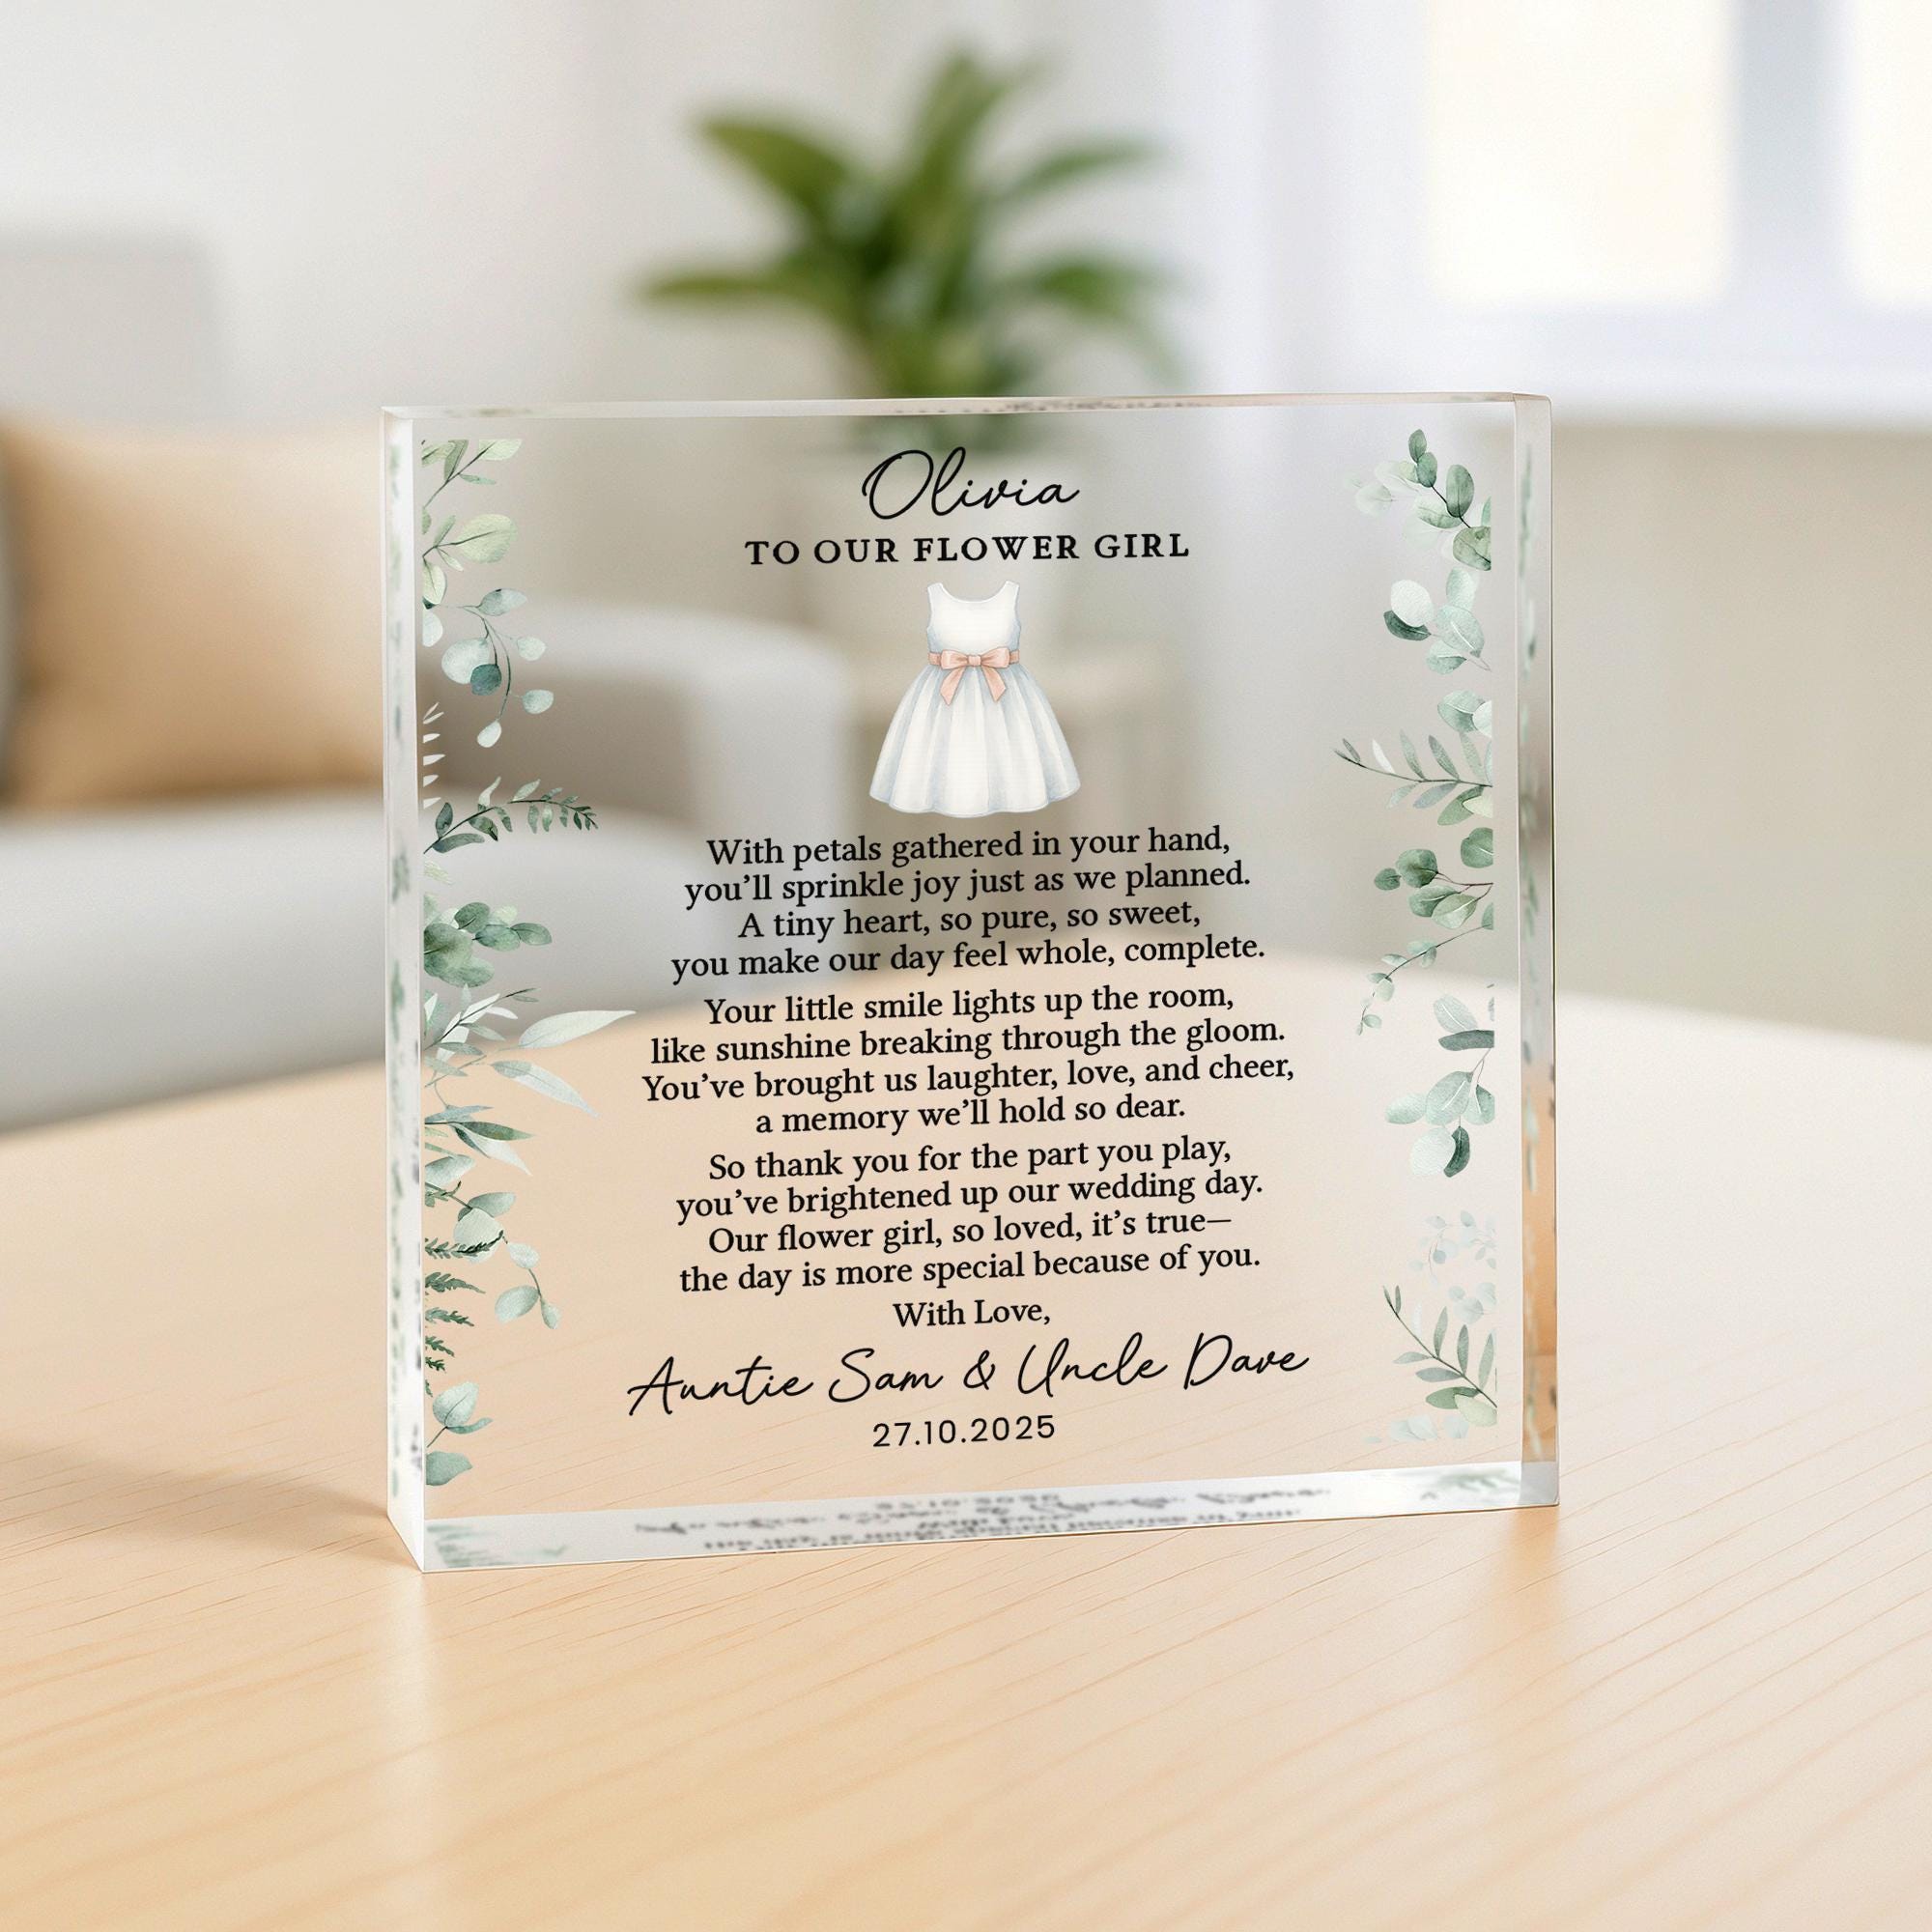 Olivia
TO OUR FLOWER GIRL
With petals gathered in your hand,
you’ll sprinkle joy just as we planned.
A tiny heart, so pure, so sweet,
you make our day feel whole, complete.
Your little smile lights up the room,
like sunshine breaking through the gloom.
You’ve brought us laughter, love, and cheer,
a memory we’ll hold so dear.
So thank you for the part you play,
you’ve brightened up our wedding day.
Our flower girl, so loved, it’s true—
the day is more special because of you.
With Love,
Auntie Sam & Uncle Dave
27.10.2025